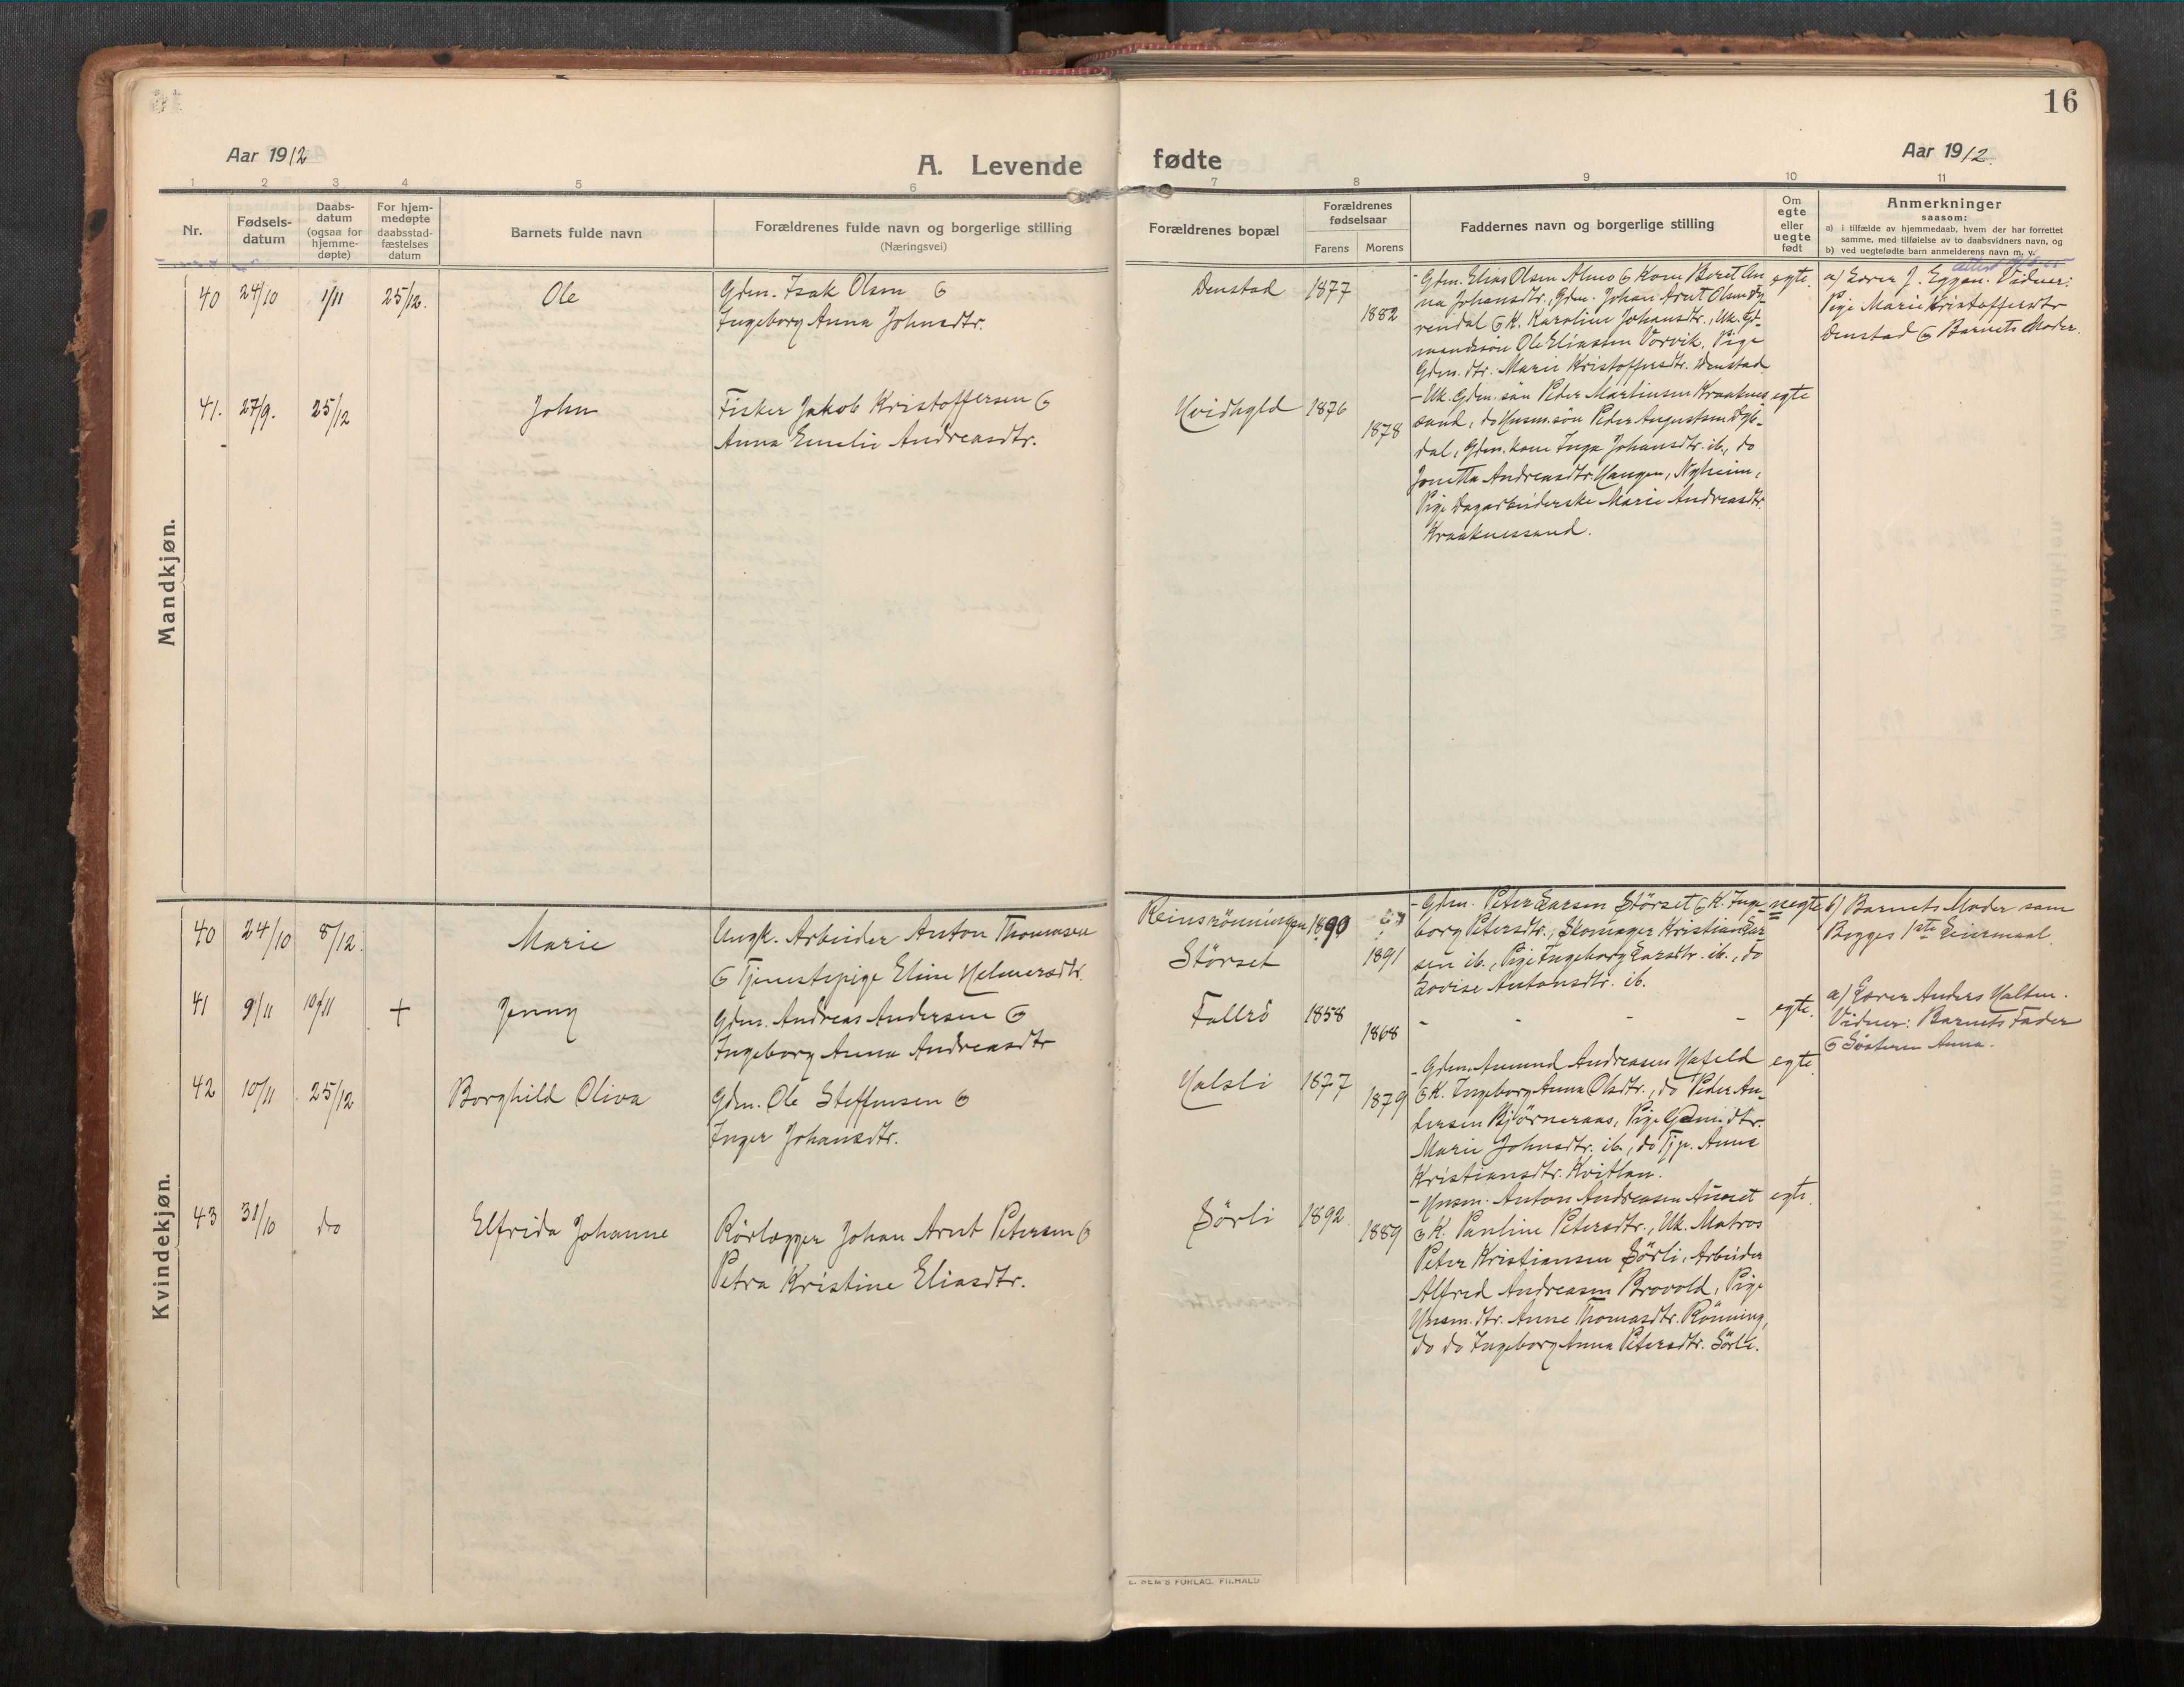 16
Aar 1912
A. Levende fødte
Aar 1912.
1 2 3 4 5 6 7 8 9 10 11
Nr.
Fødsels-
datum
Daabs-
datum
(ogsaa for
hjemme-
døpte)
For hjem-
medøpte
daabsstad-
fæstelses
datum
Barnets fulde navn
Forældrenes fulde navn og borgerlige stilling
(Næringsvei)
Forældrenes bopæl
Forældrenes
fødselsaar
Farens Morens
Faddernes navn og borgerlige stilling
Om
egte
eller
uegte
født
Anmerkninger
saasom:
a) i tilfælde av hjemmedaab, hvem der har forrettet
samme, med tilføielse av to daabsvidners navn, og
b) ved uegtefødte barn anmelderens navn m. v.
Mandkjøn.
40 24/10 1/11 25/12. Ole
Gdm. Isak Olsen &
Ingeborg Anna Johnsdtr.
Denstad 1877
1882
- Gdm. Elias Olsen Almo & Kone Beret An
na Johansdtr., Gdm. Johan Arnt Olsen Dy-
rendal & K. Karoline Johansdtr., Uk. Gd-
mandssøn Ole Eliassen Vorvik, Pige
Gdm. dtr. Marie Kristoffersdtr. Denstad
egte.
a) Lærer J. Eggen. Vidner:
Pige Marie Kristoffersdtr
Denstad & Barnets Moder.
41. 27/9. 25/12 John
Fisker Jakob Kristoffersen &
Anna Emelie Andreasdtr.
Hvidhyld 1876
1878
- Uk. Gdm. søn Peder Martinsen Kraaknes
sand, do Husm. søn Peder Augustsen Dyb-
dal, Gdm. kone Inga Johansdtr. ib., do
Jonetta Andreasdtr. Haugen, Nyheim,
Pige Dagarbeiderske Marie Andreasdtr.
Kraaknessand.
egte
Kvindekjøn.
40 24/10 8/12. Marie
Ungk. Arbeider Anton Thomasen
& Tjenestepige Eline Helmersdtr.
Reinsrönningen 1890
Störset 1891
- Gdm. Peter Larsen Störset & K. Inge
borg Petersdtr., Skomager Kristian Lar
sen ib., Pige Ingeborg Larsdtr. ib., do
Lovise Antonsdtr. ib.
uegte
b) Barnets Moder som
Begges 1ste Leiermaal.
41 9/11 10/11 + Jenny
Gdm. Andreas Andersen &
Ingeborg Anna Andreasdtr
Fallrö 1858
1868
- - - -
egte.
a) Lærer Anders Halten.
Vidner: Barnets Fader
& Søsteren Anna.
42 10/11 25/12 Borghild Oliva
Gdm. Ole Steffensen &
Inger Johansdtr.
Halsli 1877
1879
- Gdm. Amund Andreasen Hafeld
& K. Ingeborg Anna Olsdtr., do Peder An-
dersen Bjørneraas, Pige Gdm. dtr.
Marie Johnsdtr. ib., do Tjp. Anne
Kristiansdtr. Kvitlan.
egte
43 31/10 do Elfrida Johanne
Rörlægger Johan Arnt Petersen &
Petra Kristine Eliasdtr.
Sörli 1892
1889
- Husm. Anton Andreasen Auset
& K. Pauline Petersdtr., Uk. Matros
Peter Kristiansen Sörli, Arbeider
Alfred Andreasen Brovold, Pige
Husm. dtr. Anne Thomasdtr. Rönning,
do do Ingeborg Anna Petersdtr. Sörli.
egte.
E. SEM'S FORLAG, F.HALD